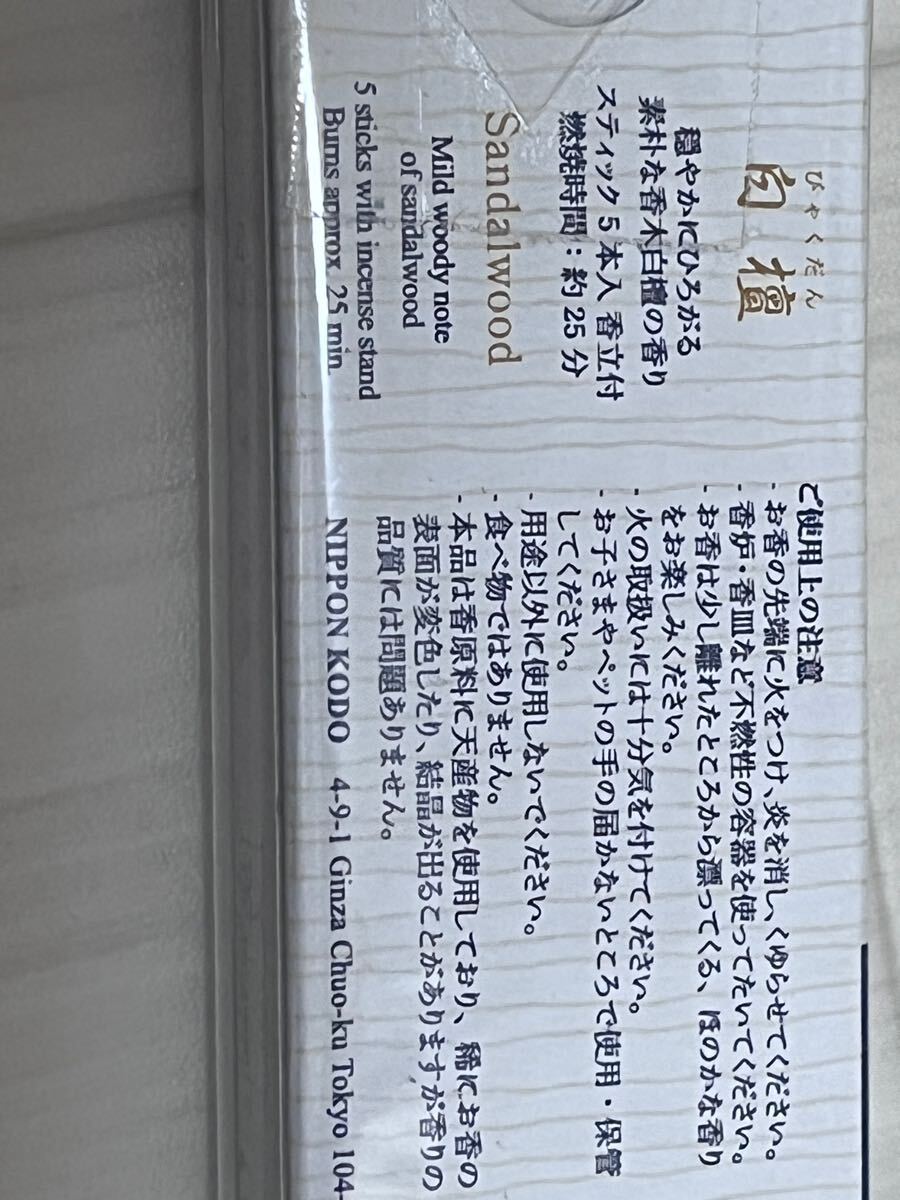 ひゃくだん
白檀
穏やかにひろがる
素朴な香木白檀の香り
スティック5本入 香立付
燃焼時間：約25分
Sandalwood
Mild woody note
of sandalwood
5 sticks with incense stand
Burns approx. 25 min.
ご使用上の注意
・お香の先端に火をつけ、炎を消し、くゆらせてください。
・香炉・香皿など不燃性の容器を使ってたいてください。
・お香は少し離れたところから漂ってくる、ほのかな香り
をお楽しみください。
・火の取扱いには十分気を付けてください。
・お子さまやペットの手の届かないところで使用・保管
してください。
・用途以外に使用しないでください。
・食べ物ではありません。
・本品は香原料に天産物を使用しており、稀にお香の
表面が変色したり、結晶が出ることがありますが香りの
品質には問題ありません。
NIPPON KODO 4-9-1 Ginza Chuo-ku Tokyo 104-